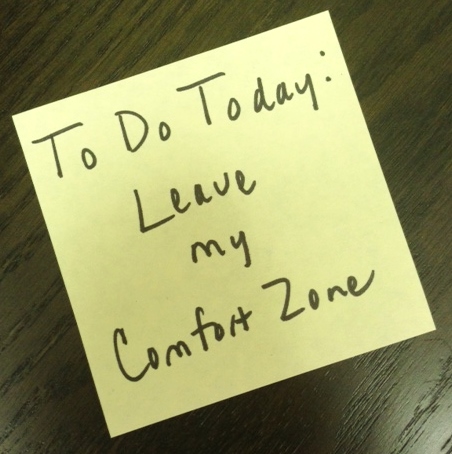 To Do Today:
Leave
my
Comfort Zone